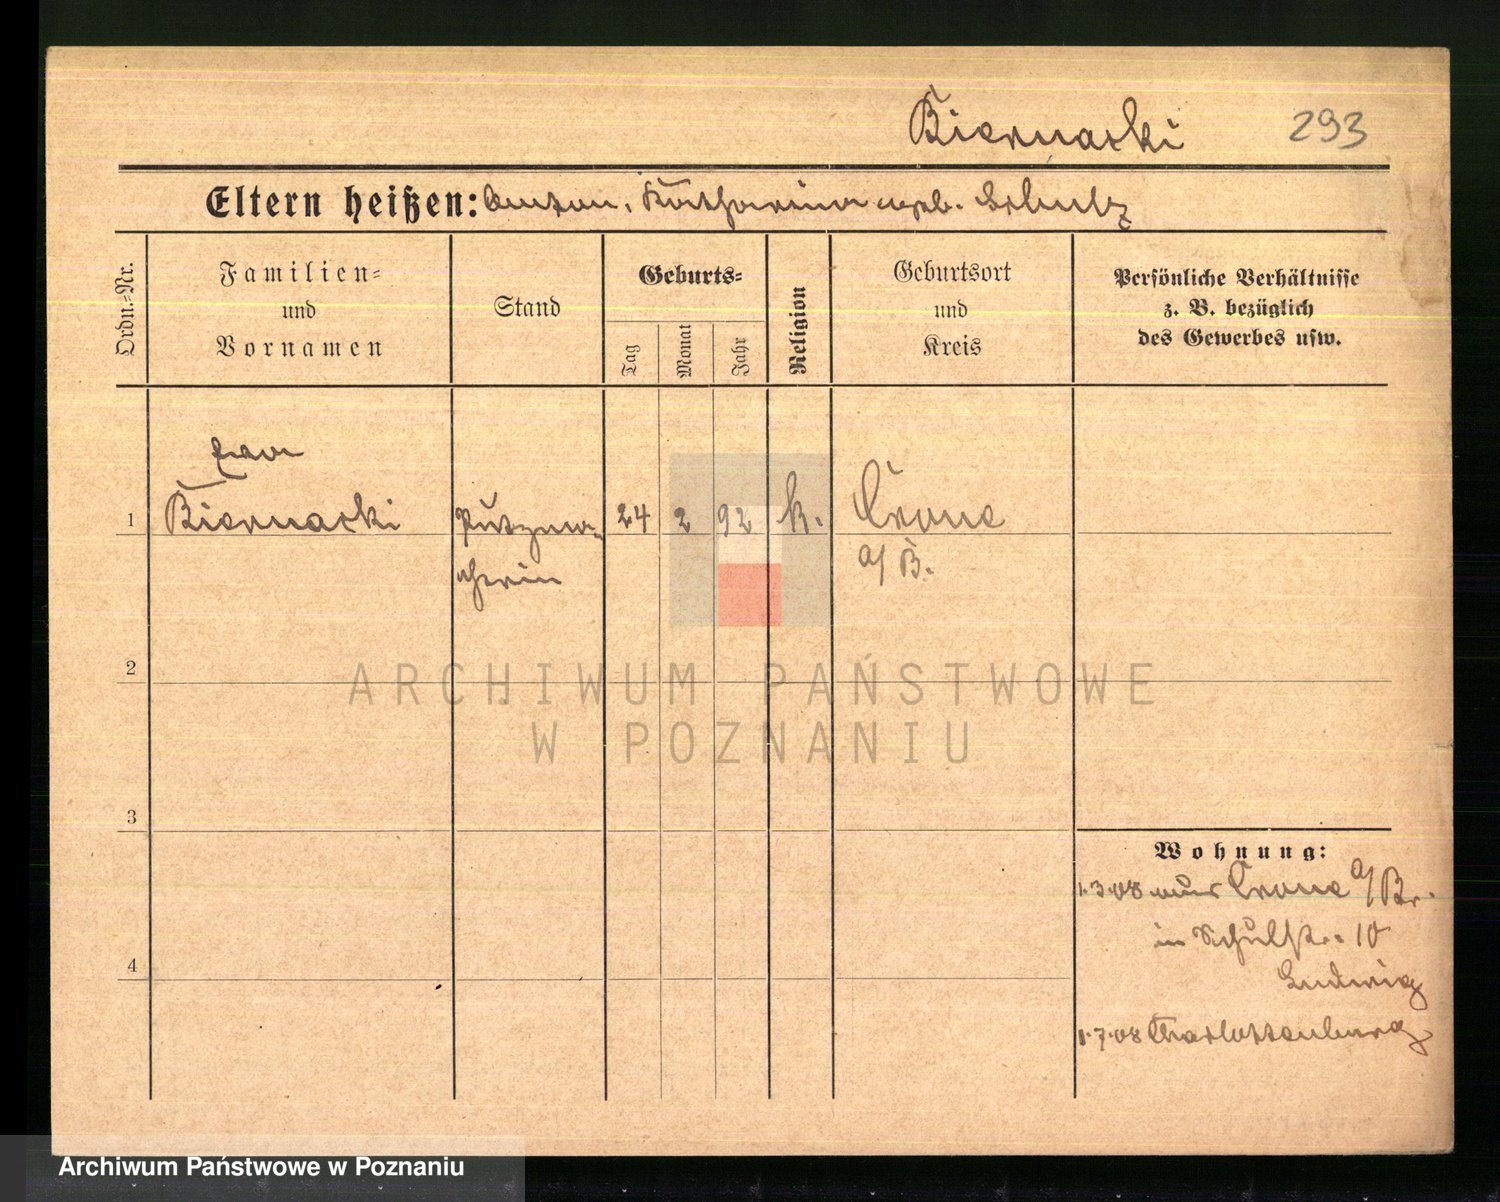 Biernacki 293
Eltern heißen: Anton, Katharina geb. Schulz
Ordn.-Nr.
Familien-
und
Vornamen
Stand
Geburts-
Tag
Monat
Jahr
Religion
Geburtsort
und
Kreis
Persönliche Verhältnisse
z. B. bezüglich
des Gewerbes usw.
1 Biernacki Putzma- 24 2 92 k. Crone
cherin a/B.
2
ARCHIWUM PAŃSTWOWE
W POZNANIU
3
Wohnung:
1.3.08 aus Crone a/Br.
in Schulstr. 10
Ludwig
4
1.7.08 Charlottenburg
Archiwum Państwowe w Poznaniu